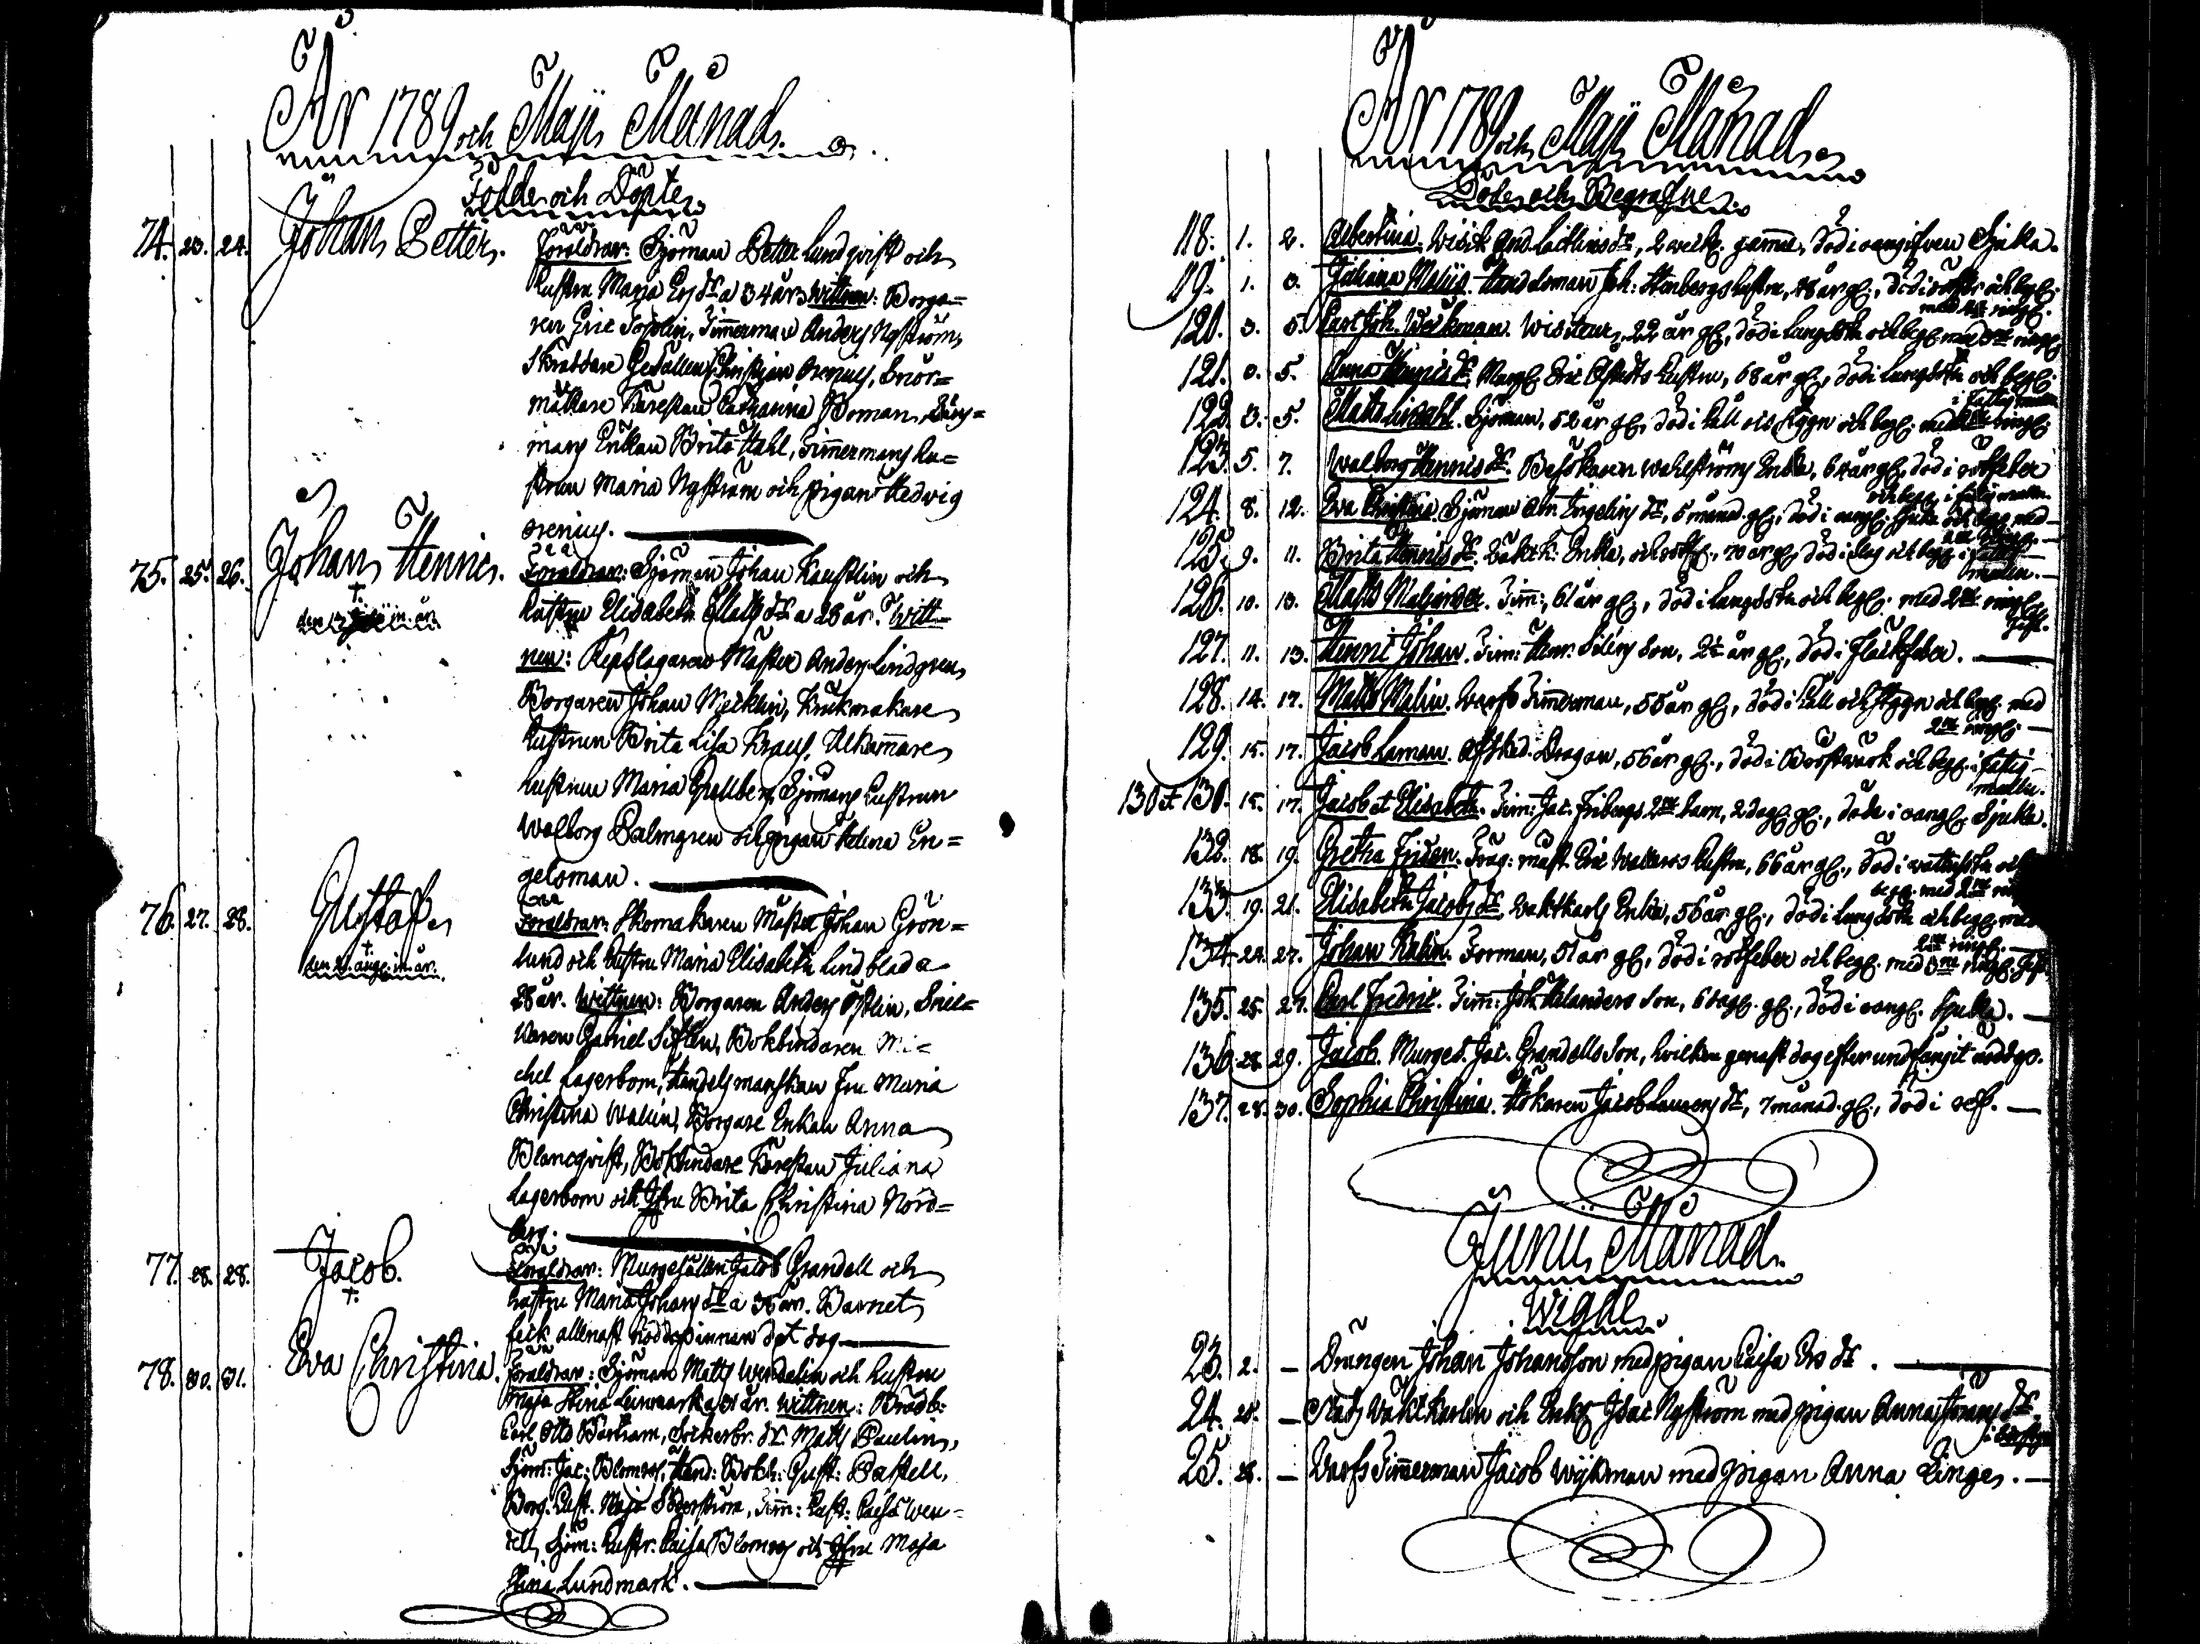 År 1789 och Maji Månad.
Födde och Döpte
74. 23. 24. Johan Petter. Föräldrar: Sjöman Petter Lundqvist och
hustru Maria Ers dr a 34 år. Wittnen: Borga=
ren Eric Joplin, Timmerman Anders Nyström,
Skräddare Gesällen Christian Orenius, Snör=
mäkare Hürestau Catharina Boman, Sjöy=
mans Enkan Brita Stahl, Timmermans hu=
strun Maria Nyström och pigan Hedvig
Orenius.
75. 25. 26. Johan Hennic. Föräldrar: Sjöman Johan Kaustlin och
hustru Elisabeth Matts dr a 28 år. Witt=
nen: Repslagaren Mäster Anders Lindgren,
Borgaren Johan Mecklin, Krukmakare
hustrun Brita Lisa Kraus,
hustrun Maria Grellberg, Sjömans hustrun
Walborg Palmgren och pigan Helena En=
geloman.
76. 27. 28. Gustaf. Föräldrar: Skomakaren Mäster Johan Grön=
lund och hustru Maria Elisabeth Lindblad a
28 år. Wittnen: Borgaren Anders Östlin, Snic=
karen Gabriel Siflen, Bokbindaren Mi=
chel Lagerbom, Handelsmanskan Fru Maria
Christina Wallin, Borgare Enkan Anna
Blancqvist, Bokbindare Hürestau Juliana
Lagerbom och Jfru Brita Christina Nord=
berg.
77. 28. 28. Jacob. † Föräldrar: Murgesällen Jacob Grandell och
hustru Maria Johans dr a 36 år. Barnet
feck allenast nöddop innan det dog
78. 30. 31. Eva Christina. Föräldrar: Sjöman Matts Wendelin och hustru
Maja Stina Leinmark a 31 år. Wittnen: Brödb:
Carl Otto Bartram, Sockerbr. dr. Matts Paulin,
Sjöm: Jac: Blomros, Hand: Bokh: Gust: Pastell,
Borg. hust. Maja Söderström, Tim: hust: Caisa Wen=
dell, Sjöm: hustr: Caisa Blomros och Jfru Maja
Stina Lundmark.
År 1789 och Maji Månad
Döde och Begrafne
118. 1. 2. Albertina. Wisit: And. Laitlins dr, 2 weck. gammal, död i oangifven Sjuka.
119. 1. 3. Juliana Malis. Handelsman Joh: Stenbergs hustru, 28 år gl:, död i rötfeber och begr:
med 2ne ringg.
120. 3. 5. Carl Joh. Weckman. Wisiteur, 22 år gl, död i lungsot och begr. med 3ne ringg
121. 3. 5. Anna Hinric dr. Murg. Eric Alstedts hustru, 68 år gl, död i lungsot och begr:
i fattig mullen
122. 3. 5. Matts Lindahl. Sjöman, 52 år gl, död i håll och stygn och begr. med 2ne ringg.
123. 5. 7. Walborg Hennics dr. Besökaren Wahlströms Enka, 64 år gl, död i rötfeber
och begr. i fattig mullen.
124. 8. 12. Eva Christina. Sjöman Abr. Engelins dr, 5 månad gl, död i oangl: Sjuka och begr. med
125. 9. 11. Brita Hennics dr. Enka, 70 år gl, död i slag och begr. i fattig
mullen.
126. 10. 13. Matts Maljander. Tim:, 61 år gl, död i lungsot och begr. med 2ne ringg
127. 11. 13. Henric Johan. Tim: Henr. Siléns Son, 2½ år gl, död i fläckfeber.
128. 14. 17. Matts Malin. Warfs Timmerman, 55 år gl, död i håll och stygn och begr. med
2ne ringg.
129. 15. 17. Jacob Laman. Afsked. Dragon, 56 år gl, död i Bröstwärk och begr. i fattig
mullen.
130 et 130. 15. 17. Jacob et Elisabeth. Tim: Jac. Fribergs 2ne barn, 2 dag. gl., döde i oangl. Sjuka.
132. 18. 19. Gretha Friden. mäst. Eric Wallœus hustru, 66 år gl, död i wattusot och
begr. med 2ne
133. 19. 21. Elisabeth Jacobs dr. Waktkarls Enka, 56 år gl, död i lungsot och begr. med
2ne ringg.
134. 24. 27. Johan Kalin. Forman, 51 år gl, död i rötfeber och begr. med 3ne ringg.
135. 25. 27. Carl Fredric. Tim: Joh. Helanders Son, 6 dag. gl, död i oangl. Sjuka.
136. 28. 29. Jacob. Murges. Jac. Grandells Son, hvilken genast dog efter undfångit nöddop.
137. 28. 30. Sophia Christina. Hökaren Jacob Laurens dr, 7 månad. gl, död i ref.
Junii Månad.
Wigde
23. 2. Drängen Johan Johansson med pigan Caisa Ers dr.
24. 25. Stads Wakt Karlen och Enkl Isac Nyström med pigan Anna Jörans dr.
25. 28. Warfs Timmerman Jacob Wijkman med pigan Anna Linge.